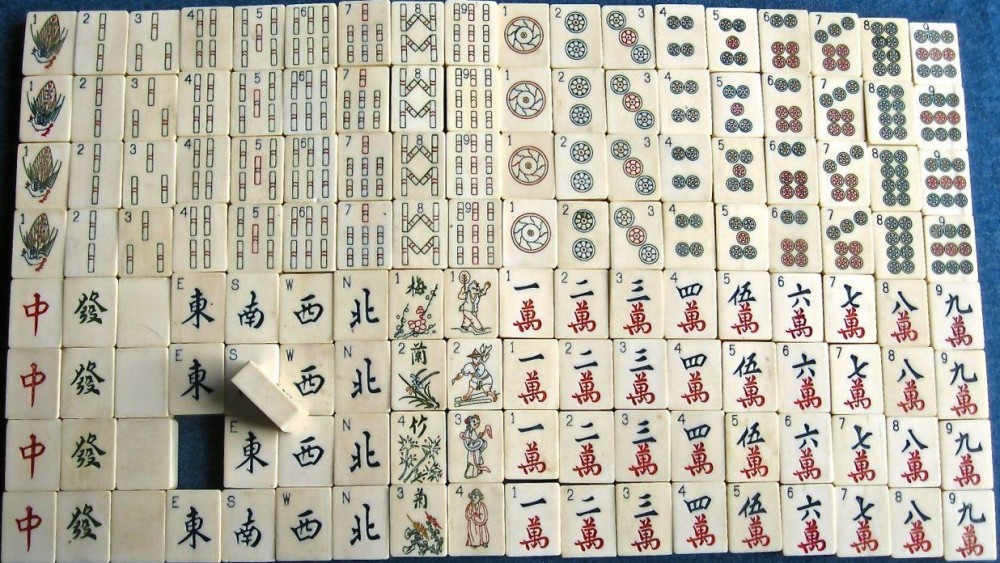 1 2 3 4 5 6 7 8 9 1 2 3 4 5 6 7 8 9
1 2 3 4 5 6 7 8 9 1 2 3 4 5 6 7 8 9
1 2 3 4 5 6 7 8 9 1 2 3 4 5 6 7 8 9
1 2 3 4 5 6 7 8 9 1 2 3 4 5 6 7 8 9
中 發 E 東 S 南 W 西 N 北 1 梅 1 1 一萬 2 二萬 3 三萬 4 四萬 5 伍萬 6 六萬 7 七萬 8 八萬 9 九萬
中 發 E 東 S W 西 N 北 2 蘭 2 1 一萬 2 二萬 3 三萬 4 四萬 5 伍萬 6 六萬 7 七萬 8 八萬 9 九萬
中 發 E 東 W 西 N 北 4 竹 3 1 一萬 2 二萬 3 三萬 4 四萬 5 伍萬 6 六萬 7 七萬 8 八萬 9 九萬
中 發 E 東 S 南 W 西 N 北 3 菊 4 1 一萬 2 二萬 3 三萬 4 四萬 5 伍萬 6 六萬 7 七萬 8 八萬 9 九萬